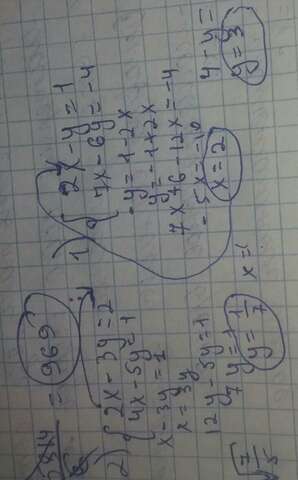 = 969
1) { 2x - y = 1
7x - 6y = -4
-y = 1 - 2x
y = -1 + 2x
7x + 6 - 12x = -4
-5x = -10
x = 2
4 - y =
y = 3
2) { 2x - 3y = 2
4x - 5y = 1
x - 3y = 2
x = 3y
12y - 5y = 1
7y = 1
y = 1/7
x =